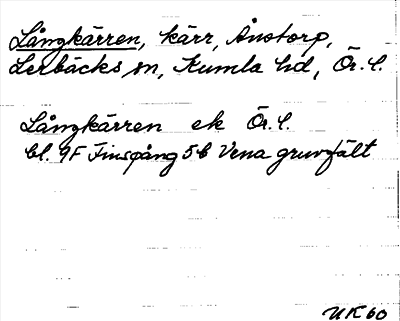 Långkärren, kärr, Ånstorp,
Lerbäcks sn, Kumla hd, Ör. l.
Långkärren ek Ör. l.
bl. 9F Finspång 5b Vena gruvfält
UK 60